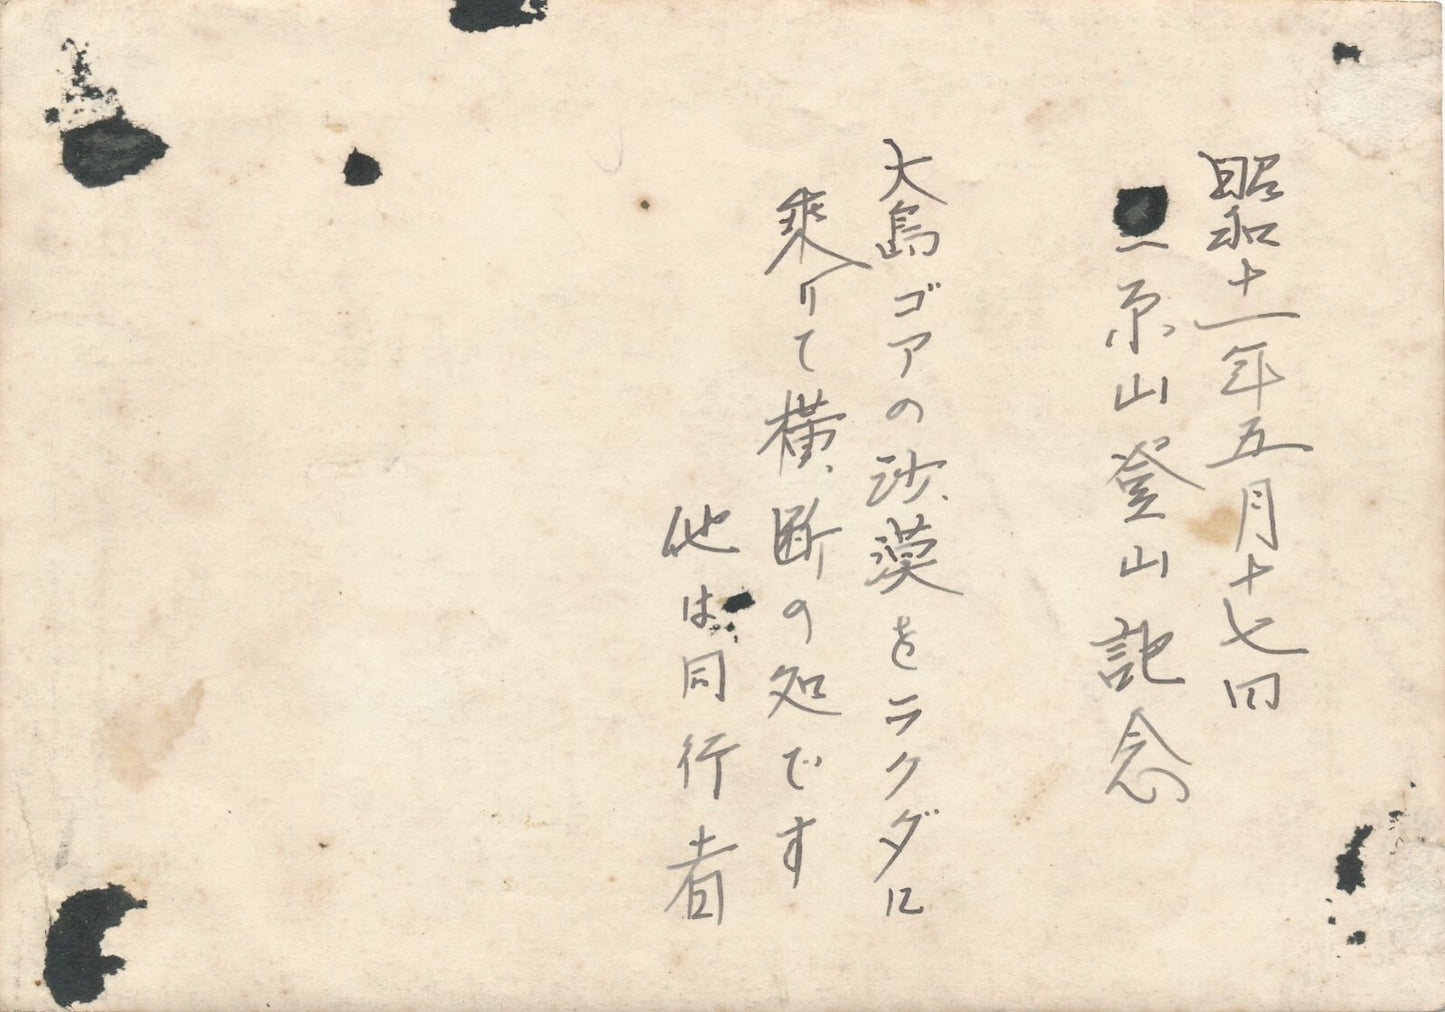 昭和十一年五月十七日
三原山登山記念
大島ゴアの沙漠をラクダに
乗りて横断の処です
他は同行者